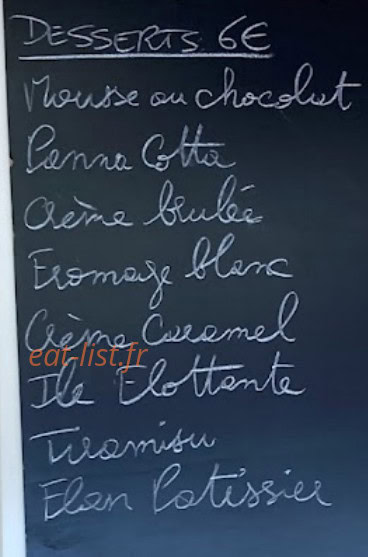 DESSERTS 6€
Mousse au chocolat
Panna Cotta
Crème brulée
Fromage blanc
Crème Caramel
eat-list.fr
Ile Flottante
Tiramisu
Flan Patissier